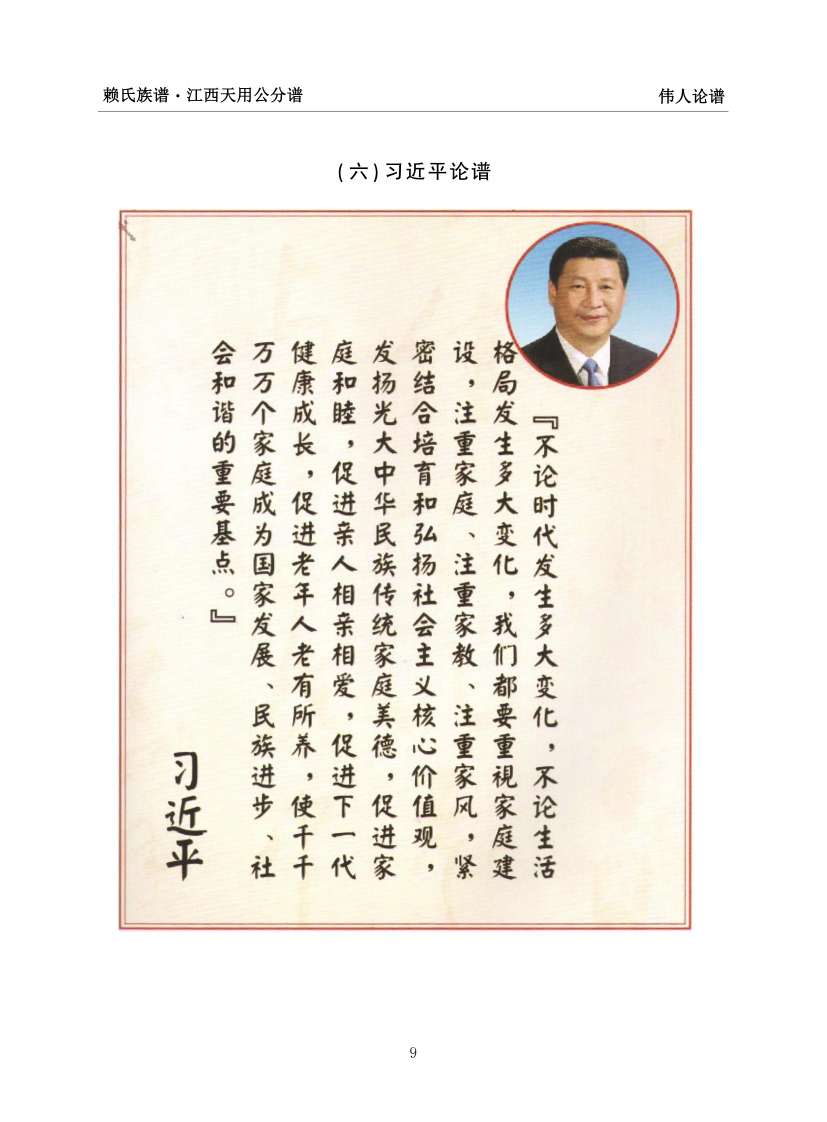 赖氏族谱·江西天用公分谱
伟人论谱
(六)习近平论谱
『不论时代发生多大变化，不论生活
格局发生多大变化，我们都要重视家庭建
设，注重家庭、注重家教、注重家风，紧
密结合培育和弘扬社会主义核心价值观，
发扬光大中华民族传统家庭美德，促进家
庭和睦，促进亲人相亲相爱，促进下一代
健康成长，促进老年人老有所养，使千千
万万个家庭成为国家发展、民族进步、社
会和谐的重要基点。』
习近平
9